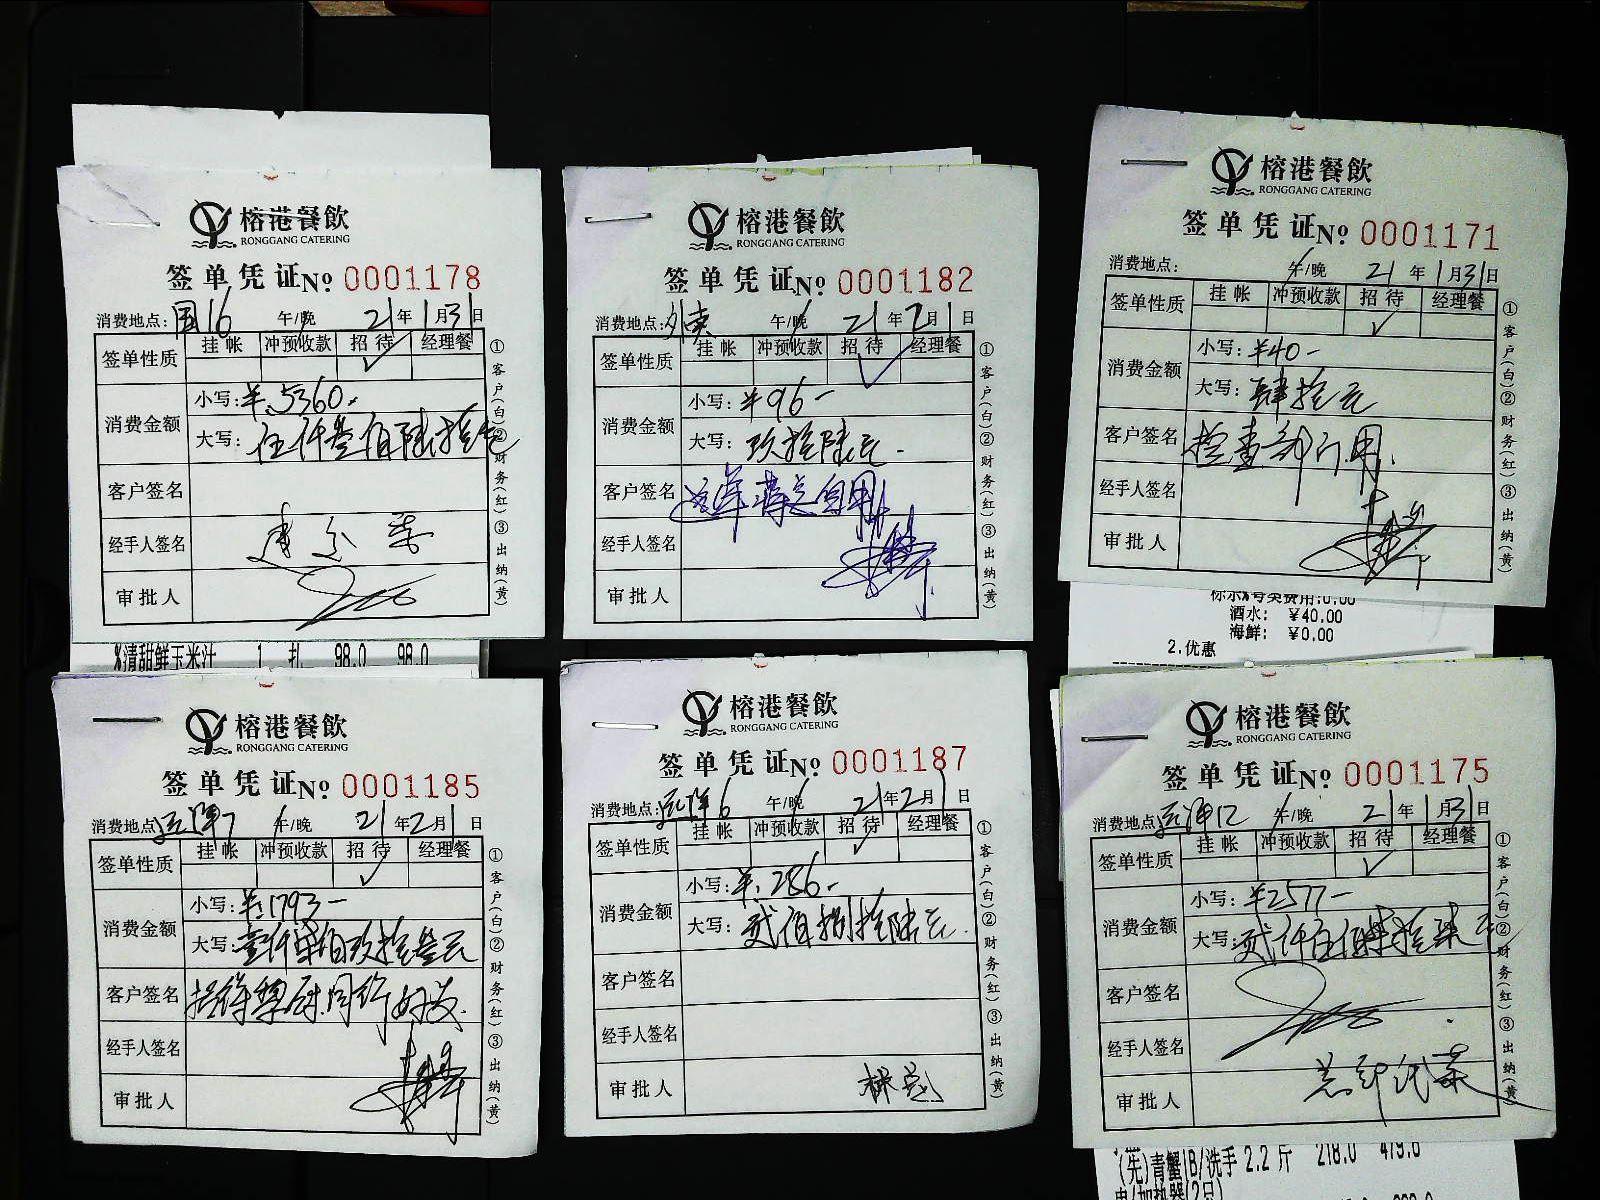 榕港餐飲
RONGGANG CATERING
签单凭证№ 0001178
消费地点:国16 午/晚 21年1月31日
签单性质 挂帐 冲预收款 招待 经理餐
✓
消费金额 小写:¥5360.
大写:伍仟叁佰陆拾元
客户签名
经手人签名
审批人
①客户(白)②财务(红)③出纳(黄)
%清甜鲜玉米汁 1 扎 98.0 98.0
榕港餐飲
RONGGANG CATERING
签单凭证№ 0001182
消费地点: 午/晚 21年2月1日
签单性质 挂帐 冲预收款 招待 经理餐
✓
消费金额 小写:¥96-
大写:玖拾陆元.
客户签名
经手人签名
审批人
①客户(白)②财务(红)③出纳(黄)
榕港餐飲
RONGGANG CATERING
签单凭证№ 0001171
消费地点: 午/晚 21年1月31日
签单性质 挂帐 冲预收款 招待 经理餐
✓
消费金额 小写:¥40-
大写:肆拾元
客户签名 检查部门用.
经手人签名
审批人
①客户(白)②财务(红)③出纳(黄)
酒水: ¥40.00
海鲜: ¥0.00
2.优惠
榕港餐飲
RONGGANG CATERING
签单凭证№ 0001185
消费地点:远洋7 午/晚 21年2月1日
签单性质 挂帐 冲预收款 招待 经理餐
✓
消费金额 小写:¥1793-
大写:壹仟柒佰玖拾叁元
客户签名
经手人签名
审批人
①客户(白)②财务(红)③出纳(黄)
榕港餐飲
RONGGANG CATERING
签单凭证№ 0001187
消费地点:远洋6 午/晚 21年2月1日
签单性质 挂帐 冲预收款 招待 经理餐
✓
消费金额 小写:¥286-
大写:贰佰捌拾陆元.
客户签名
经手人签名
审批人 林
①客户(白)②财务(红)③出纳(黄)
榕港餐飲
RONGGANG CATERING
签单凭证№ 0001175
消费地点:远洋12 午/晚 21年1月31日
签单性质 挂帐 冲预收款 招待 经理餐
✓
消费金额 小写:¥2577-
大写:贰仟伍佰柒拾柒元
客户签名
经手人签名
审批人
①客户(白)②财务(红)③出纳(黄)
(先)青蟹1B/洗手 2.2 斤 218.0 479.6